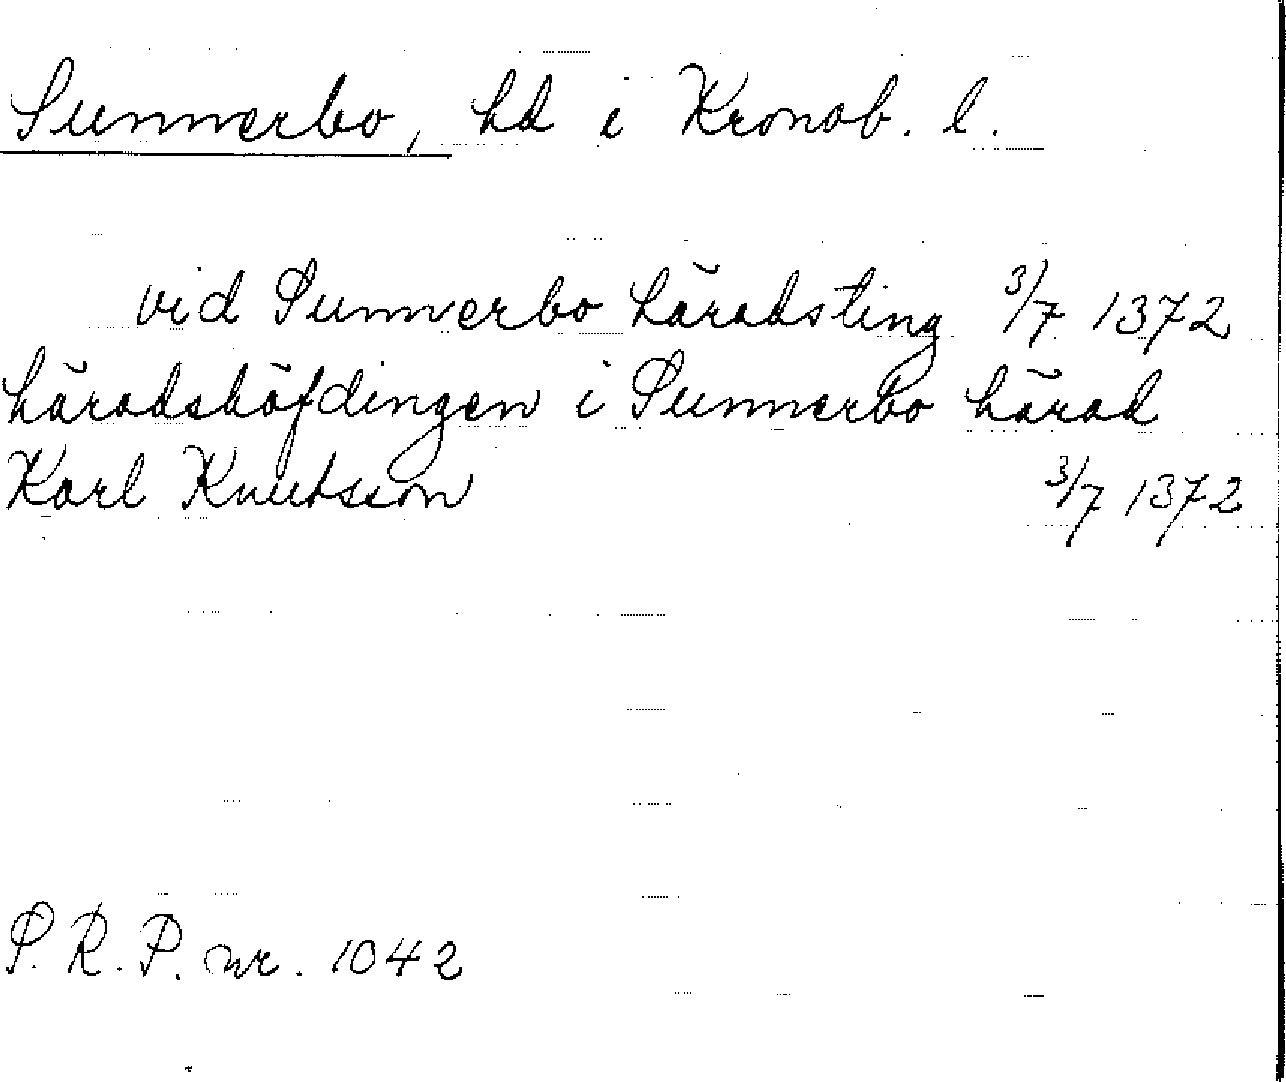 Sunnerbo, hd i Kronob. l.
vid Sunnerbo häradsting 3/7 1372
häradshöfdingen i Sunnerbo härad
Karl Knutsson 3/7 1372
S. R. P. nr. 1042